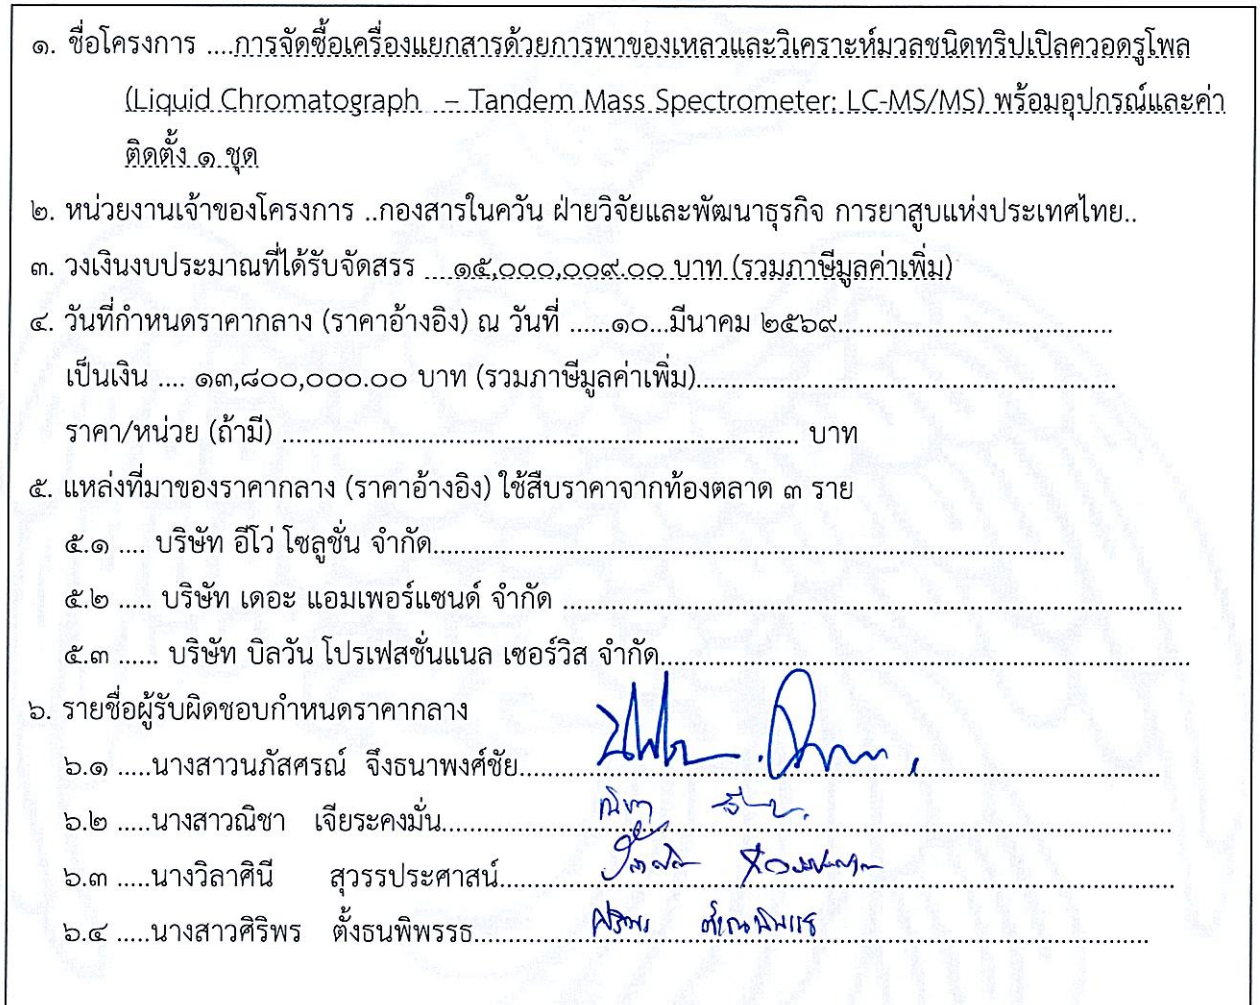 ๑. ชื่อโครงการ ....การจัดซื้อเครื่องแยกสารด้วยการพาของเหลวและวิเคราะห์มวลชนิดทริปเปิลควอดรูโพล
(Liquid Chromatograph – Tandem Mass Spectrometer: LC-MS/MS) พร้อมอุปกรณ์และค่า
ติดตั้ง ๑ ชุด
๒. หน่วยงานเจ้าของโครงการ ..กองสารในควัน ฝ่ายวิจัยและพัฒนาธุรกิจ การยาสูบแห่งประเทศไทย..
๓. วงเงินงบประมาณที่ได้รับจัดสรร ....๑๕,๐๐๐,๐๐๙.๐๐ บาท (รวมภาษีมูลค่าเพิ่ม)
๔. วันที่กำหนดราคากลาง (ราคาอ้างอิง) ณ วันที่ ......๑๐...มีนาคม ๒๕๖๙......................................
เป็นเงิน .... ๑๓,๘๐๐,๐๐๐.๐๐ บาท (รวมภาษีมูลค่าเพิ่ม)..........................................................
ราคา/หน่วย (ถ้ามี) ........................................................................ บาท
๕. แหล่งที่มาของราคากลาง (ราคาอ้างอิง) ใช้สืบราคาจากท้องตลาด ๓ ราย
๕.๑ .... บริษัท อีโว่ โซลูชั่น จำกัด........................................................................................
๕.๒ ..... บริษัท เดอะ แอมเพอร์แซนด์ จำกัด ......................................................................................
๕.๓ ...... บริษัท บิลวัน โปรเฟสชั่นแนล เซอร์วิส จำกัด..........................................................................
๖. รายชื่อผู้รับผิดชอบกำหนดราคากลาง
๖.๑ .....นางสาวนภัสศรณ์ จึงธนาพงศ์ชัย..........................................................................................
๖.๒ .....นางสาวณิชา เจียระคงมั่น.....................................................................................................
๖.๓ .....นางวิลาศินี สุวรรประศาสน์..............................................................................................
๖.๔ .....นางสาวศิริพร ตั้งธนพิพรรธ.............................................................................................
ศิริพร ตั้งธนพิพรรธ